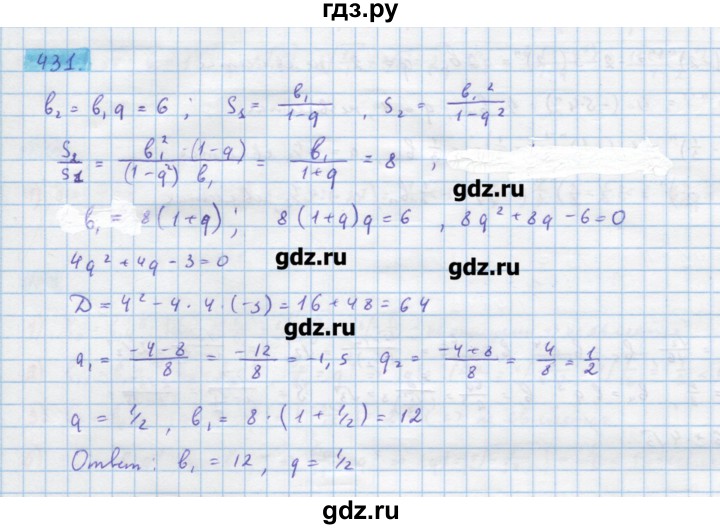 гдз.ру
431.
b₂ = b₁q = 6 ; S₁ = b₁/(1-q) , S₂ = b₁²/(1-q²)
S₂/S₁ = b₁²·(1-q)/((1-q²) b₁) = b₁/(1+q) = 8 ;
gdz.ru
b₁ = 8(1+q) ; 8(1+q)q = 6 , 8q²+8q-6=0
4q²+4q-3=0
gdz.ru
gdz.ru
D = 4²-4·4·(-3) = 16+48 = 64
gdz.ru
q₁ = (-4-8)/8 = -12/8 = -1,5 q₂ = (-4+8)/8 = 4/8 = 1/2
q = 1/2 , b₁ = 8·(1+1/2) = 12
Ответ: b₁ = 12, q = 1/2
gdz.ru